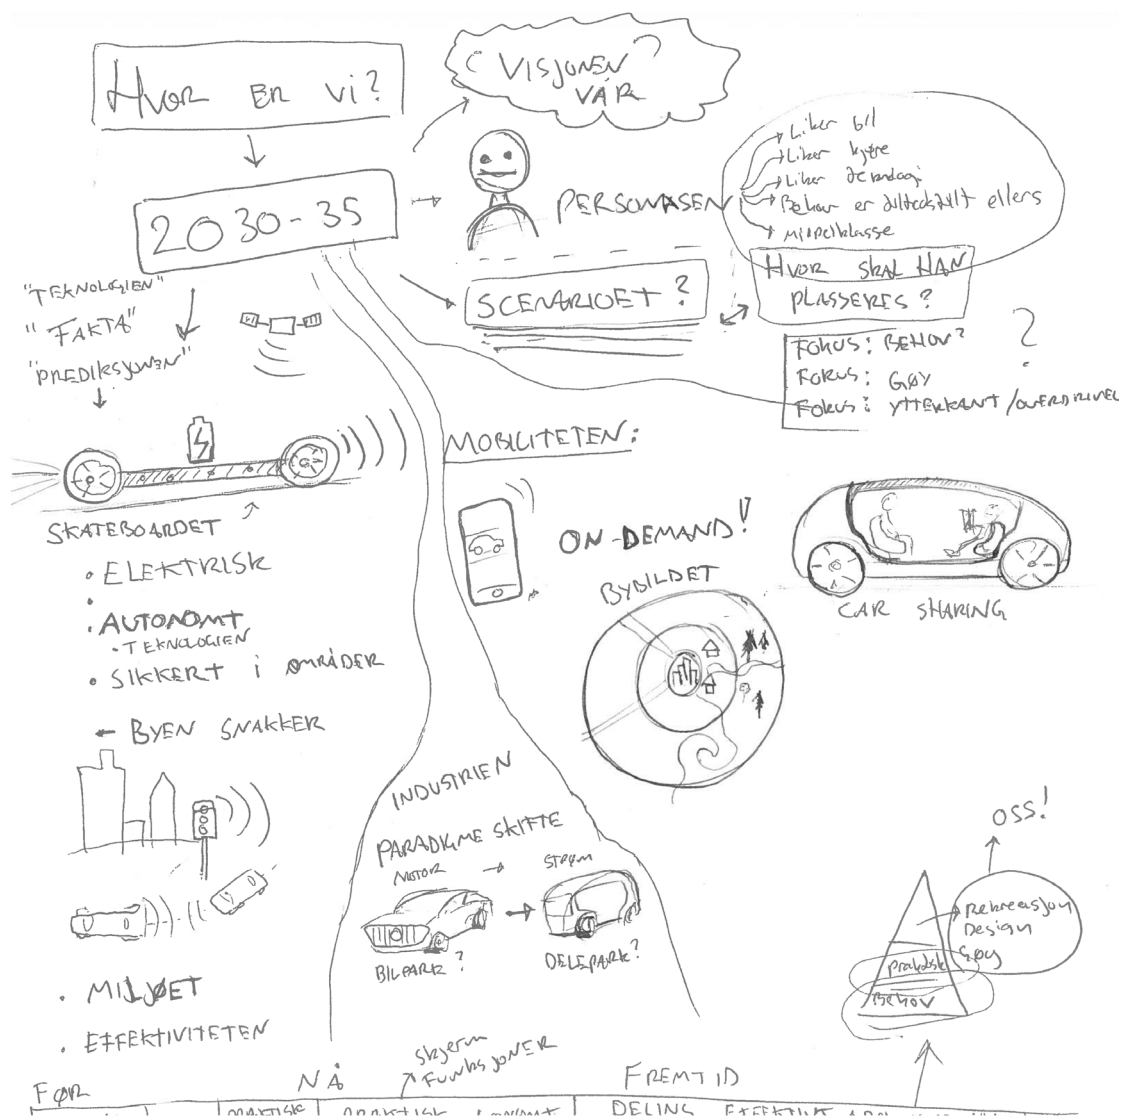 HVOR ER VI?
VISJONEN
VÅR
2030-35
PERSONASEN
Liker bil
Liker kjøre
Liker teknologi
Behov er tilfredstilt ellers
Middelklasse
HVOR SKAL HAN
PLASSERES?
SCENARIOET?
FOKUS: BEHOV?
FOKUS: GØY
FOKUS: YTTERKANT/OVERDRIVEL
?
"TEKNOLOGIEN"
"FAKTA"
"PREDIKSJONEN"
SKATEBOARDET
• ELEKTRISK
• AUTONOMT
• TEKNOLOGIEN
• SIKKERT i OMRÅDER
BYEN SNAKKER
• MILJØET
• EFFEKTIVITETEN
MOBILITETEN:
ON-DEMAND!
BYBILDET
CAR SHARING
INDUSTRIEN
PARADIGME SKIFTE
MOTOR
STRØM
BILPARK?
DELEPARK?
OSS!
Rekreasjon
Design
Gøy
Praktisk
Behov
Skjerm
FUNKSJONER
FØR
NÅ
FREMTID
PRAKTISK
PRAKTISK
DELING
EFFEKTIVT